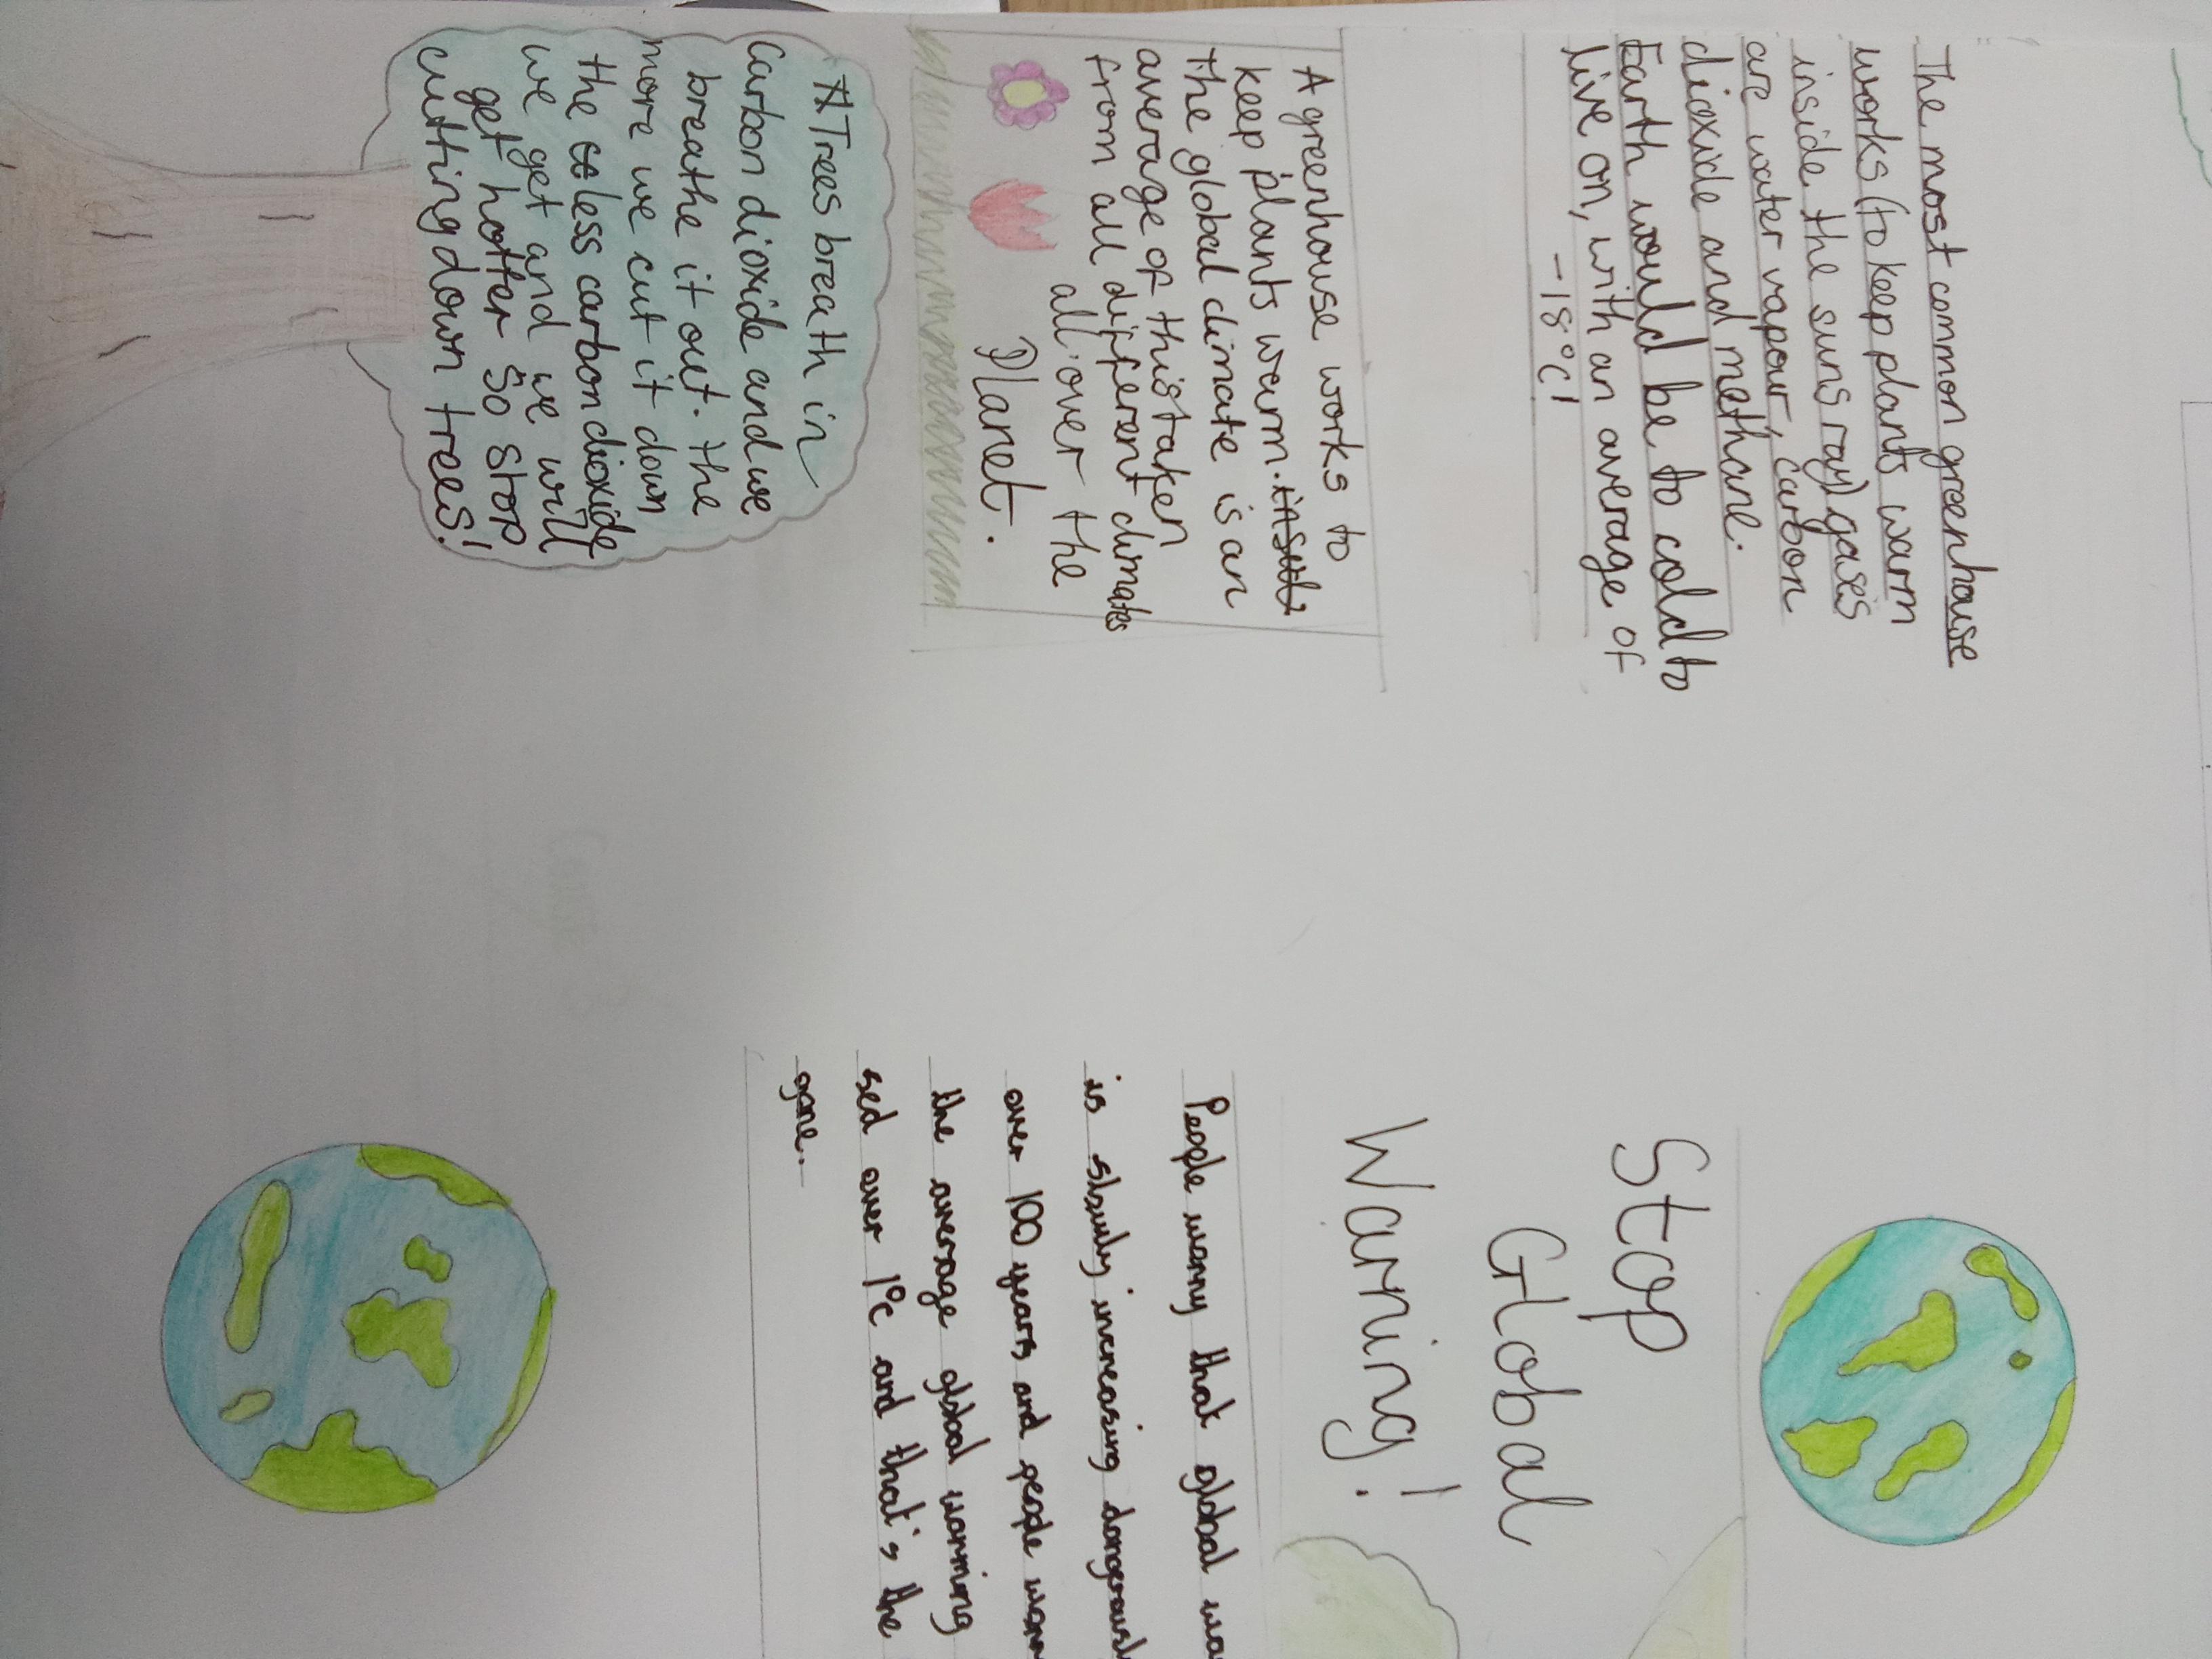 The most common greenhouse
works (to keep plants warm
inside the suns ray) gases
are water vapour, carbon
dioxide and methane.
Earth would be to cold to
live on, with an average of
-18°C!
A greenhouse works to
keep plants warm.
the global climate is an
average of this taken
from all different climates
all over the
Planet.
Trees breath in
Carbon dioxide and we
breathe it out. the
more we cut it down
the less carbon dioxide
we get and we will
get hotter so stop
cutting down trees!
Stop
Global
Warning!
People warny that global
is slowly increasing
over 100 years and people
the average global warming
sed over 1°c and that's the
agne.